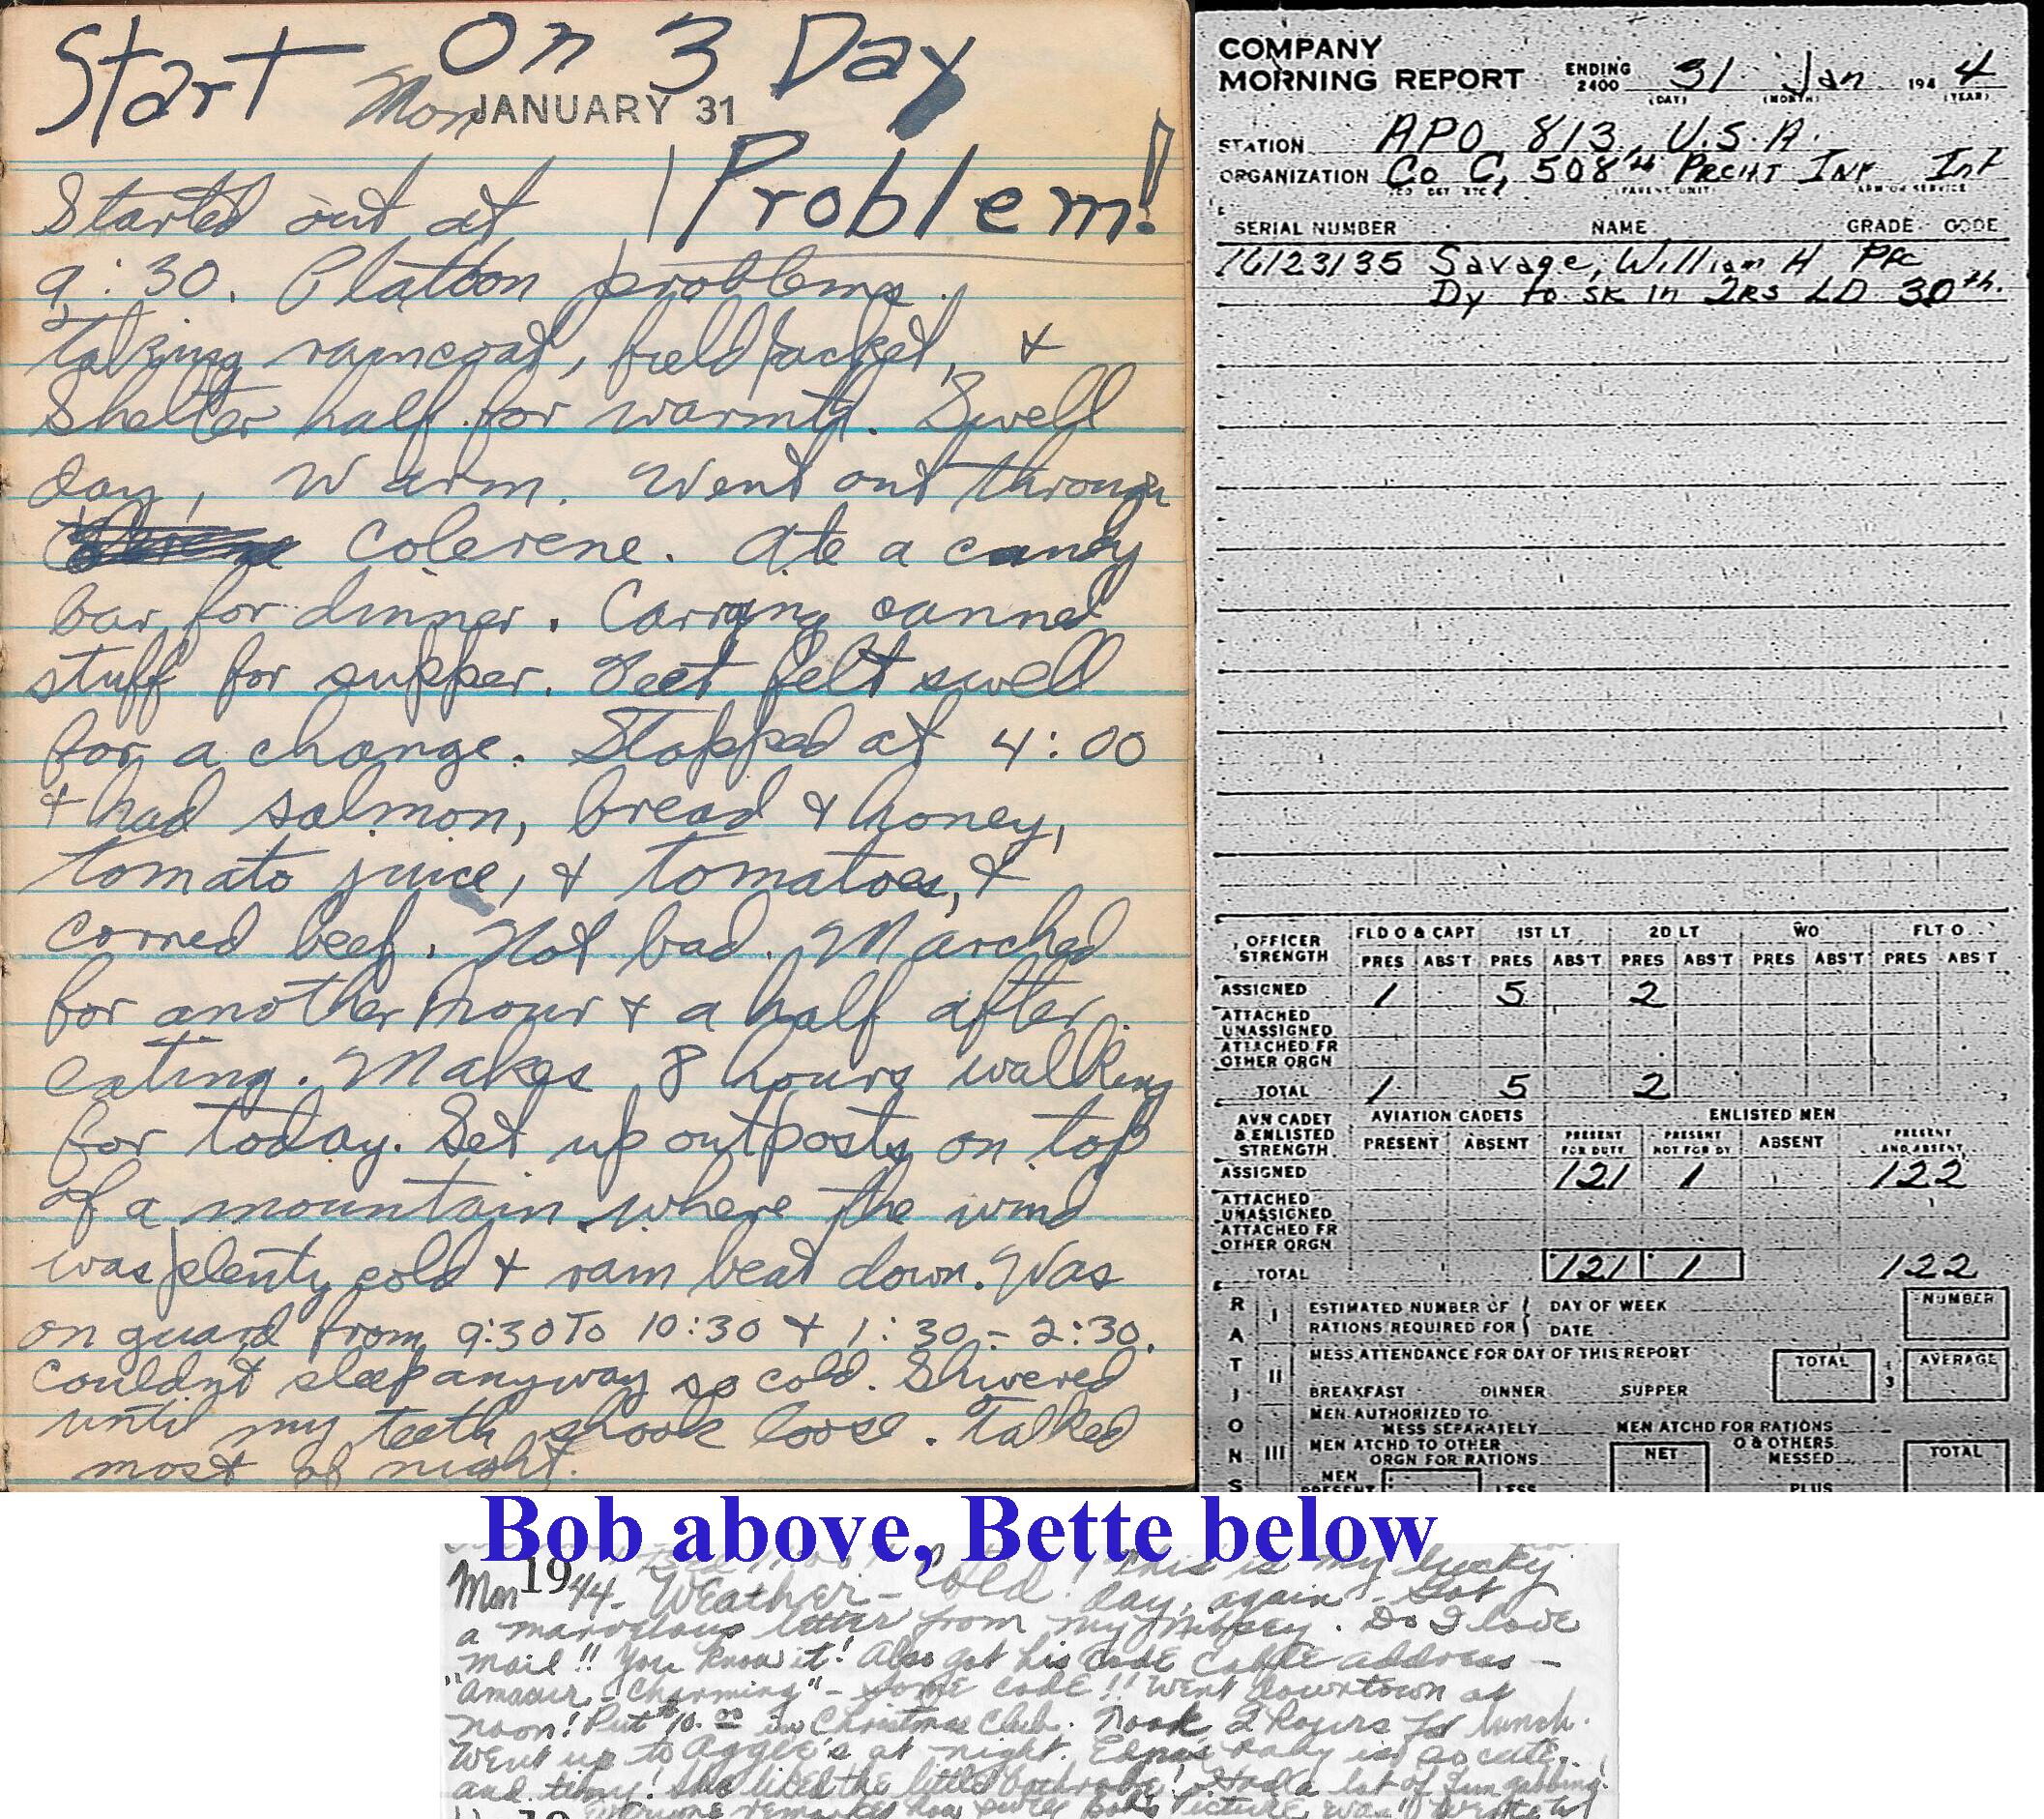 Start On 3 Day
Mon JANUARY 31
Problem!
Started out at
9:30. Platoon problems.
taking raincoat, field jacket, +
Shelter half for warmth. Swell
day, Warm. Went out through
Colerene. Ate a candy
bar for dinner. Carrying canned
stuff for supper. Feet felt swell
for a change. Stopped at 4:00
+ had salmon, bread + honey,
tomato juice, + tomatoes, +
corned beef. Not bad. Marched
for another hour + a half after
eating. Makes 8 hours walking
for today. Set up outposts on top
of a mountain where the wind
was plenty cold + rain beat down. Was
on guard from 9:30 To 10:30 + 1:30 - 2:30.
couldn't sleep anyway so cold. Shivered
until my teeth shook loose. Talked
most of night.
COMPANY
MORNING REPORT ENDING 2400 31 Jan 1944
(DAY) (MONTH) (YEAR)
STATION APO 813, U.S.A.
ORGANIZATION Co C, 508th PRCHT INF Inf
(CO DET ETC) (PARENT UNIT) ARM OR SERVICE
SERIAL NUMBER NAME GRADE CODE
16123135 Savage, William H Pfc
Dy to sk in 2RS LD 30th.
OFFICER STRENGTH FLD O & CAPT 1ST LT 2D LT WO FLT O
PRES ABS'T PRES ABS'T PRES ABS'T PRES ABS'T PRES ABS T
ASSIGNED 1 5 2
ATTACHED UNASSIGNED
ATTACHED FR OTHER ORGN
TOTAL 1 5 2
AVN CADET & ENLISTED STRENGTH AVIATION CADETS ENLISTED MEN
PRESENT ABSENT PRESENT FOR DUTY PRESENT NOT FOR DY ABSENT PRESENT AND ABSENT
ASSIGNED 121 1 122
ATTACHED UNASSIGNED
ATTACHED FR OTHER ORGN
TOTAL 121 1 122
RATIONS
I ESTIMATED NUMBER OF RATIONS REQUIRED FOR DAY OF WEEK DATE NUMBER
II MESS ATTENDANCE FOR DAY OF THIS REPORT TOTAL 3 AVERAGE
BREAKFAST DINNER SUPPER
III MEN AUTHORIZED TO MESS SEPARATELY MEN ATCHD FOR RATIONS
MEN ATCHD TO OTHER ORGN FOR RATIONS NET & OTHERS MESSED TOTAL
MEN PRESENT LESS PLUS
Bob above, Bette below
Mon 1944 - Weather - Cold! This is my lucky
day, again - Got
a marvelous letter from my. Do I love
mail!! You know it! Also got his code cable address -
"Amaour - Charming" - some code!! Went downtown at
noon! Put $10.00 in Christmas Club. Took 2 hours for lunch.
Went up to Aggie's at night. Edna's baby is so cute,
and tiny! She liked the little bathrobe! Had a lot of fun gabbing.
Everyone remarked how swell Bob's picture was!